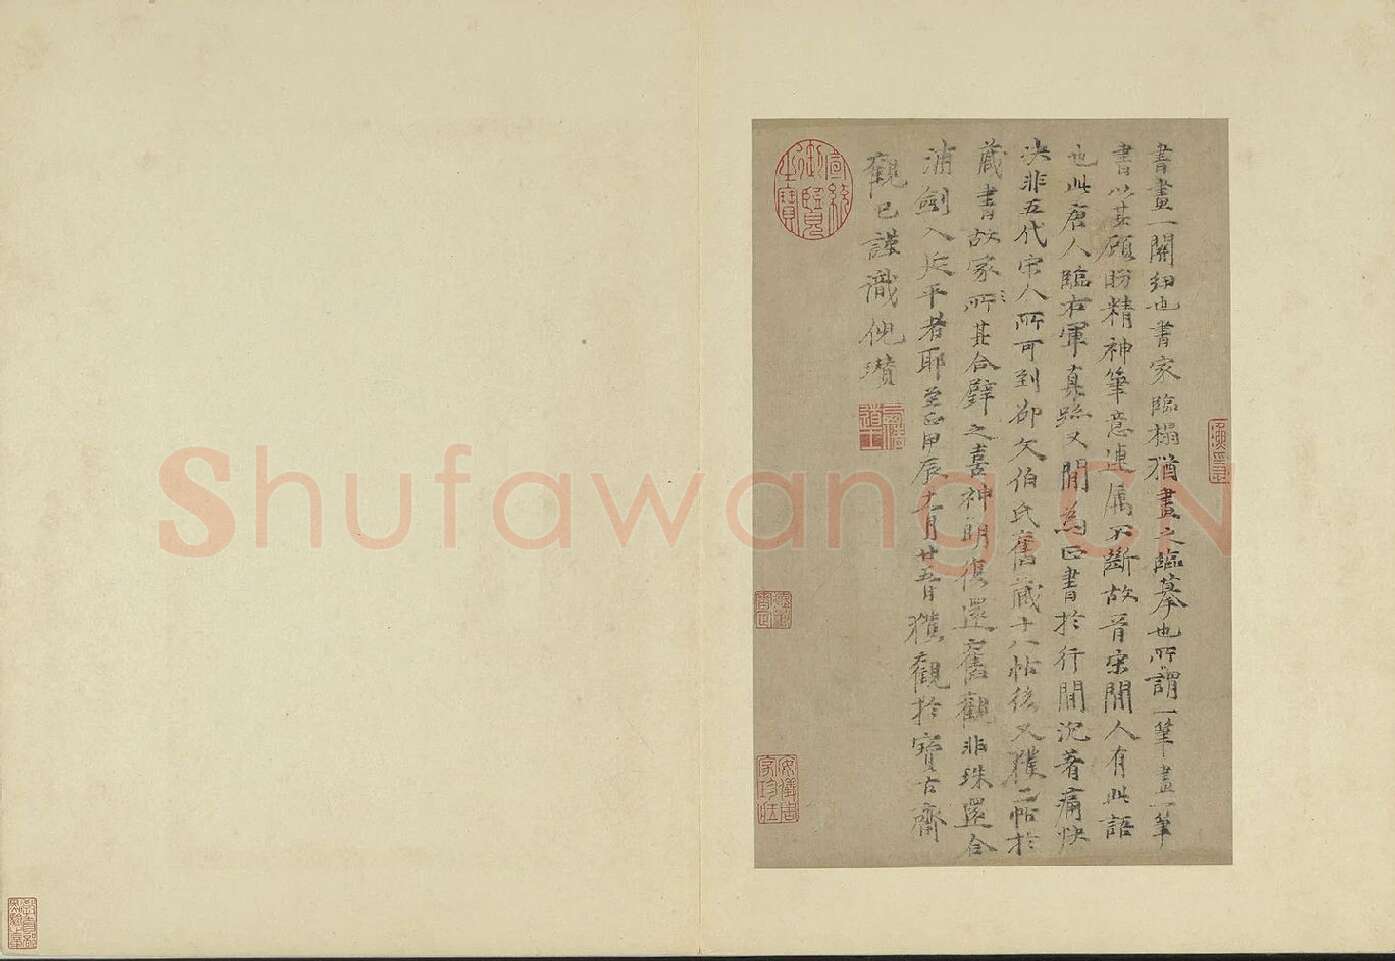 書畫一關紐也書家臨榻猶畫之臨摹也所謂一筆畫一筆
書以其顧盼精神筆意連屬不斷故晉宋間人有此語
也此唐人臨右軍真跡又間為正書於行間沉著痛快
決非五代宋人所可到卻文伯氏舊藏十八帖後又獲二帖於
藏書故家所其合璧之喜神明復還舊觀非珠還合
浦劍入延平者耶至正甲辰九月廿五日獲觀於寶古齋
觀已謹識倪瓚
宣統御覽之寶
Shufawang.CN